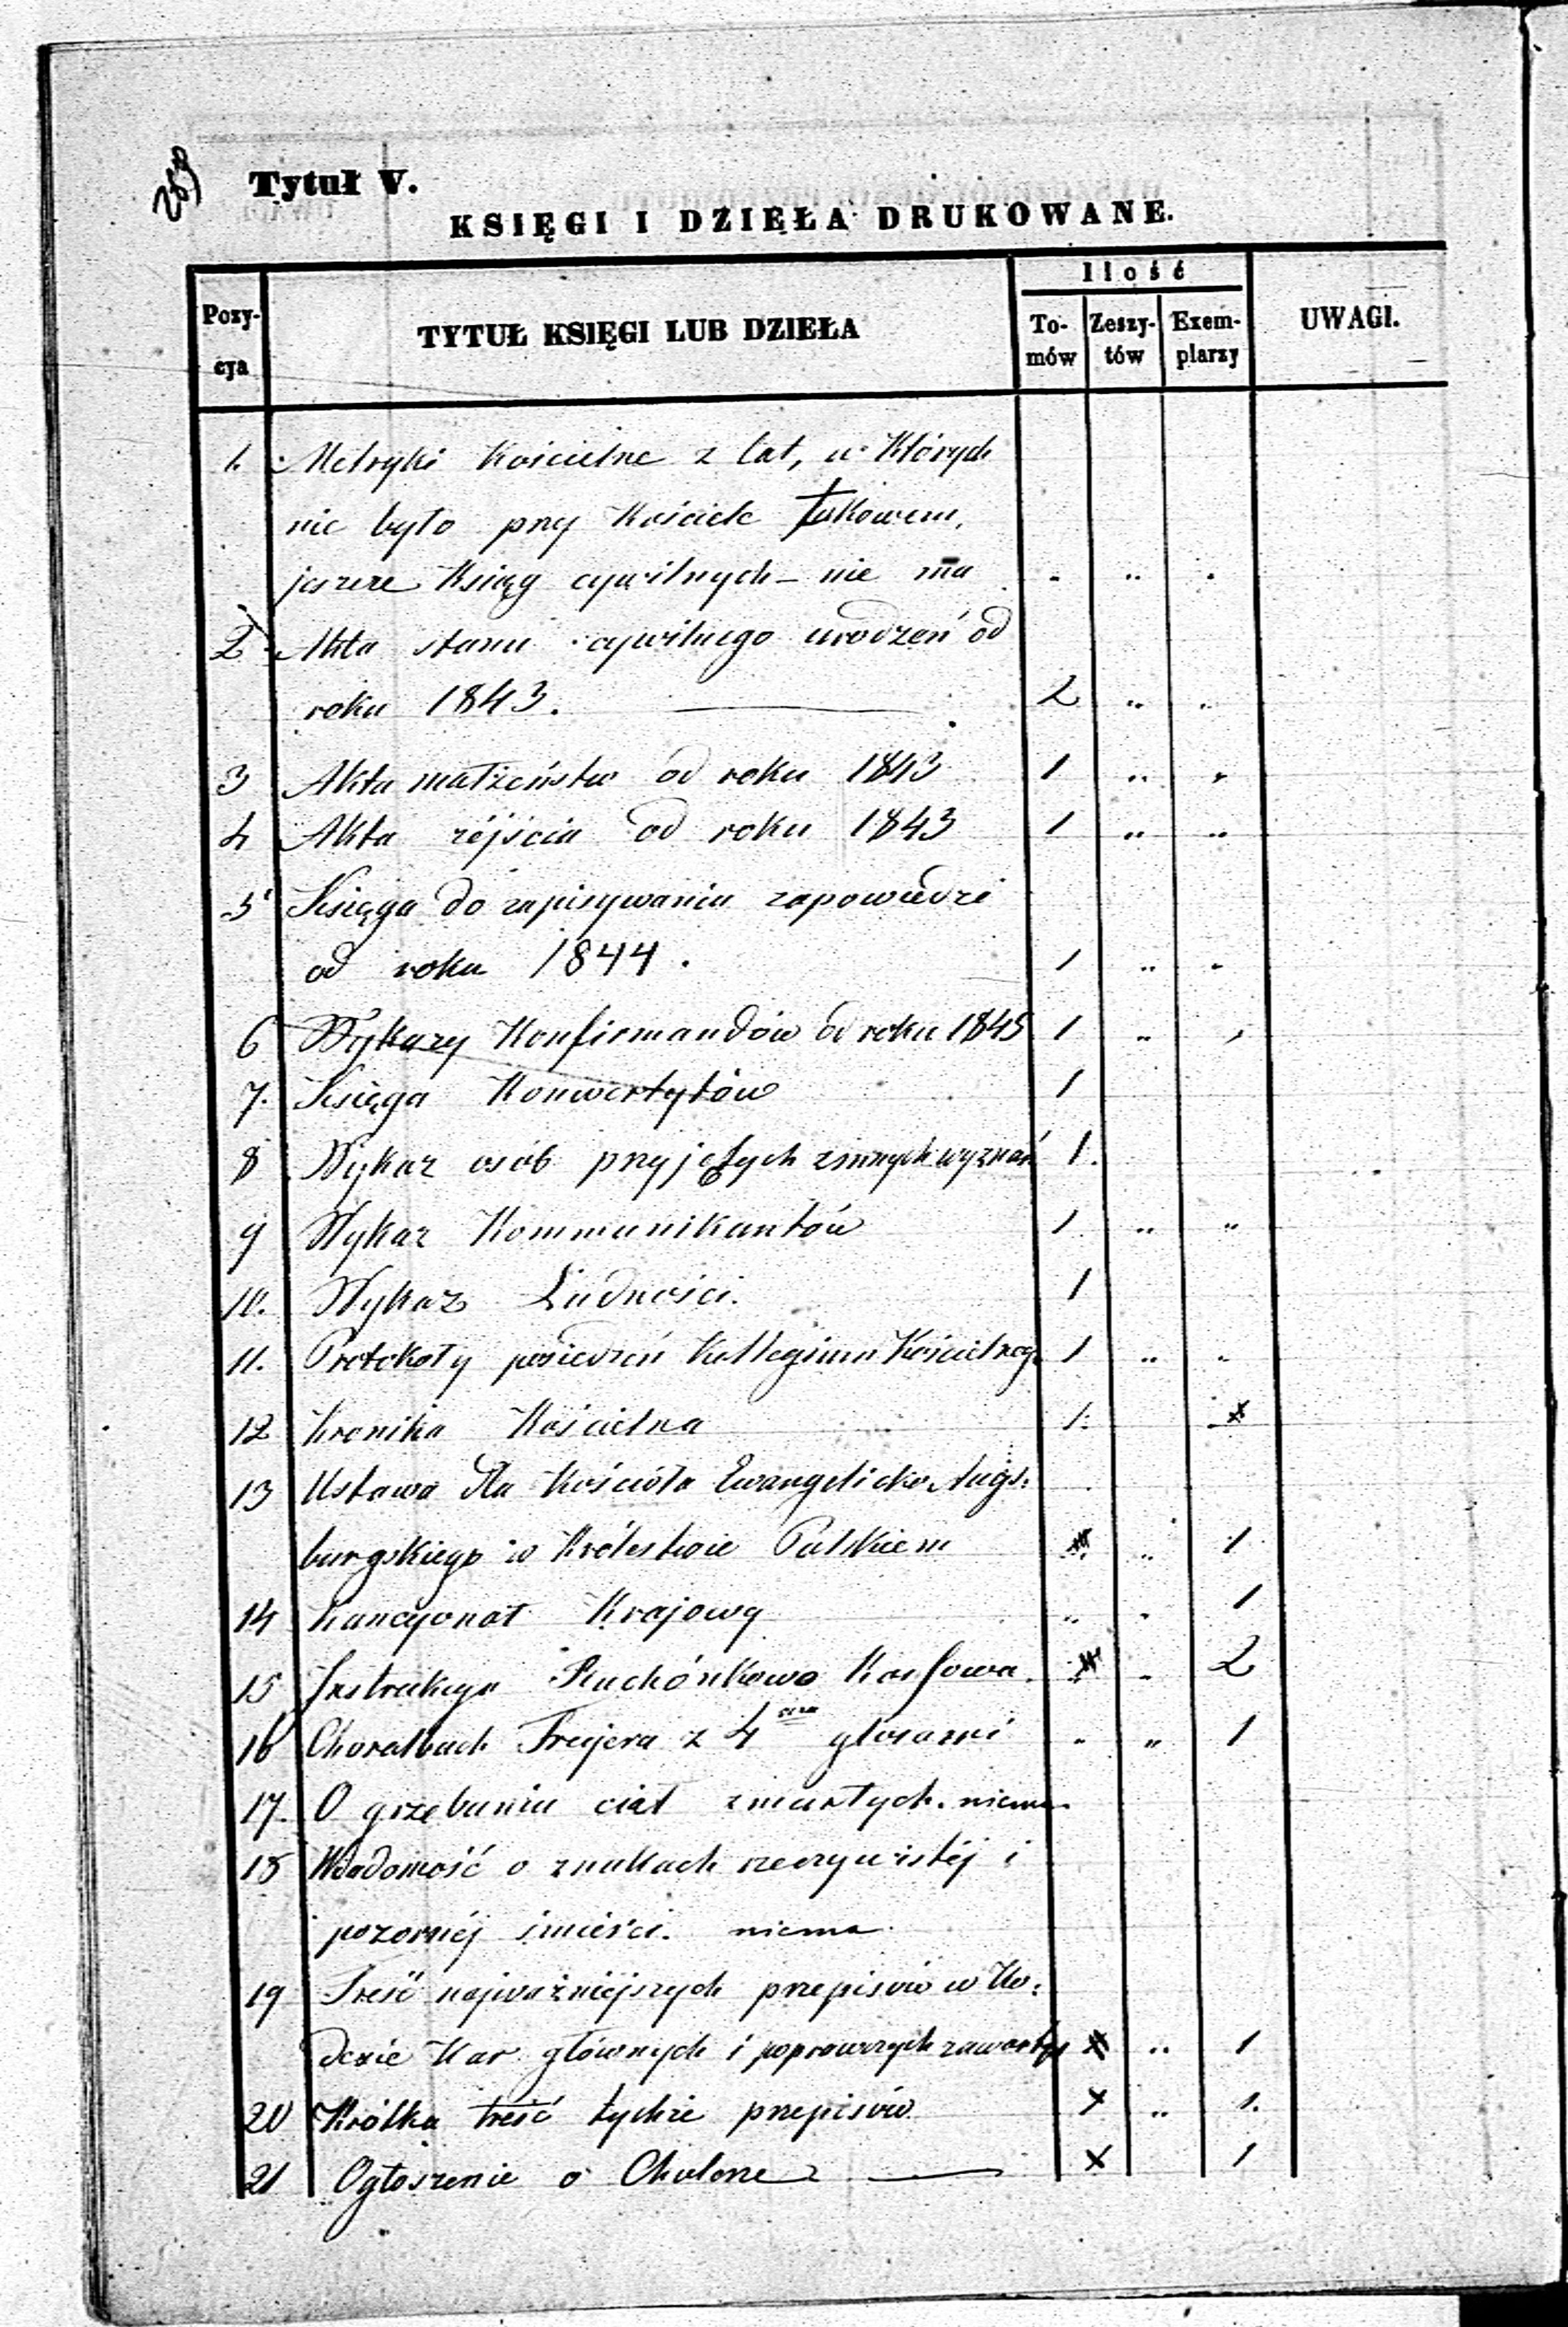 Tytuł V.
KSIĘGI I DZIEŁA DRUKOWANE.
Pozy-cya TYTUŁ KSIĘGI LUB DZIEŁA Ilość To-mów Zeszy-tów Exem-plarzy UWAGI.
1. Metryki Kościelne z lat, w Których
nie było przy Kościele
jeszcze Ksiąg cywilnych – nie ma . .. .
2 Akta stanu cywilnego urodzeń od
roku 1843. — 2 .. ..
3 Akta małżeństw od roku 1843 1 .. .
4 Akta zejścia od roku 1843 1 .. ..
5 Księga do zapisywania zapowiedzi
od roku 1844. 1 .. .
6 Wykazy Konfirmandów od roku 1845 1 .. .
7. Księga Konwertytów 1
8 Wykaz osób przyjętych z innych wyznań 1.
9 Wykaz Kommunikantów 1 .. ..
10. Wykaz Ludności. 1
11. Protokoły posiedzeń Kollegium Kościelneg 1 .. .
12 Kronika Kościelna 1.
13 Ustawa dla Kościoła Ewangelicko Augs:
burgskiego w Królestwie Polskiem .. 1
14 Kancyonał Krajowy .. . 1
15 Instrukcya Rachónkowo Kassowa . 2
16 Choralbuch Freyera z 4ema głosami . .. 1
17. O grzebaniu ciał zmarłych. niema
18 Wiadomość o znakach rzeczywistéj i
pozornéj śmierci. niema
19 Treść najważniejszych przepisów w Ko:
dexie Kar głównych i poprawczych zawartych x .. 1
20 Krótka treść tychże przepisów x .. 1.
21 Ogłoszenie o Cholerze — x 1